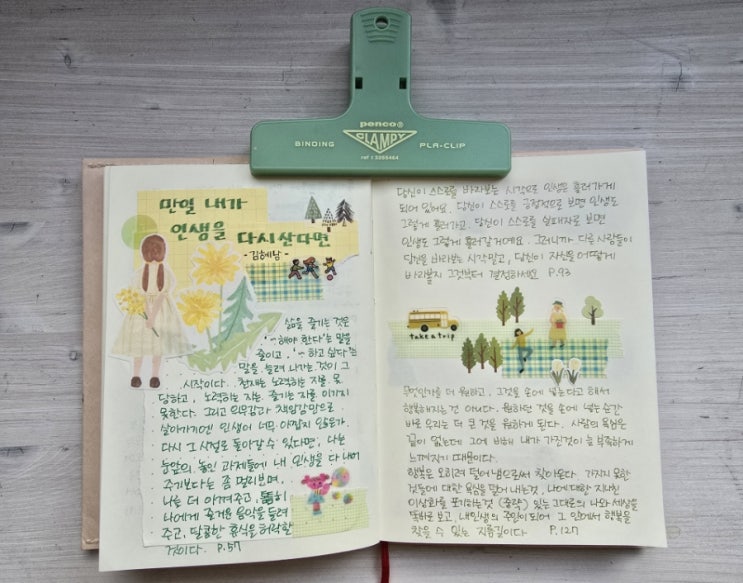 penco®
CLAMPY
BINDING
PLA-CLIP
만일 내가
인생을 다시 산다면
-김혜남-
삶을 즐기는 것은
'~해야 한다'는 말을
줄이고, '~하고 싶다'는
말을 늘려 나가는 것이 그
시작이다. 천재는 노력하는 자를 못
당하고, 노력하는 자는 즐기는 자를 이기지
못한다. 그리고 의무감과 책임감만으로
살아가기엔 인생이 너무 아깝지 않은가.
다시 그 시절로 돌아갈 수 있다면, 나는
눈앞의 놓인 과제들에 내 인생을 다 내어
주기보다는 좀 멀리보며,
나를 더 아껴주고,
나에게 즐거운 음악을 들려
주고, 달콤한 휴식을 허락할
것이다. P.57
당신이 스스로를 바라보는 시각으로 인생은 흘러가게
되어 있어요. 당신이 스스로를 긍정적으로 보면 인생도
그렇게 흘러가고, 당신이 스스로를 실패자로 보면
인생도 그렇게 흘러갈거예요. 그러니까 다른 사람들이
당신을 바라보는 시각 말고, 당신이 자신을 어떻게
바라볼지 그것부터 결정하세요. P.93
take a trip
무엇인가를 더 원하고, 그것을 손에 넣는다고 해서
행복해지는 건 아니다. 원하던 것을 손에 넣는 순간
바로 우리는 더 큰 것을 원하게 된다. 사람의 욕심은
끝이 없는데 그에 비해 내가 가진것이 늘 부족하게
느껴지기 때문이다.
행복은 오히려 덜어냄으로써 찾아온다. 가지지 못한
것들에 대한 욕심을 덜어내는 것, 나에 대한 지나친
이상화를 포기하는 것 (중략) 있는 그대로의 나와 세상을
똑바로 보고, 내 인생의 주인이 되어 그 안에서 행복을
찾을 수 있는 지름길이다. P.127